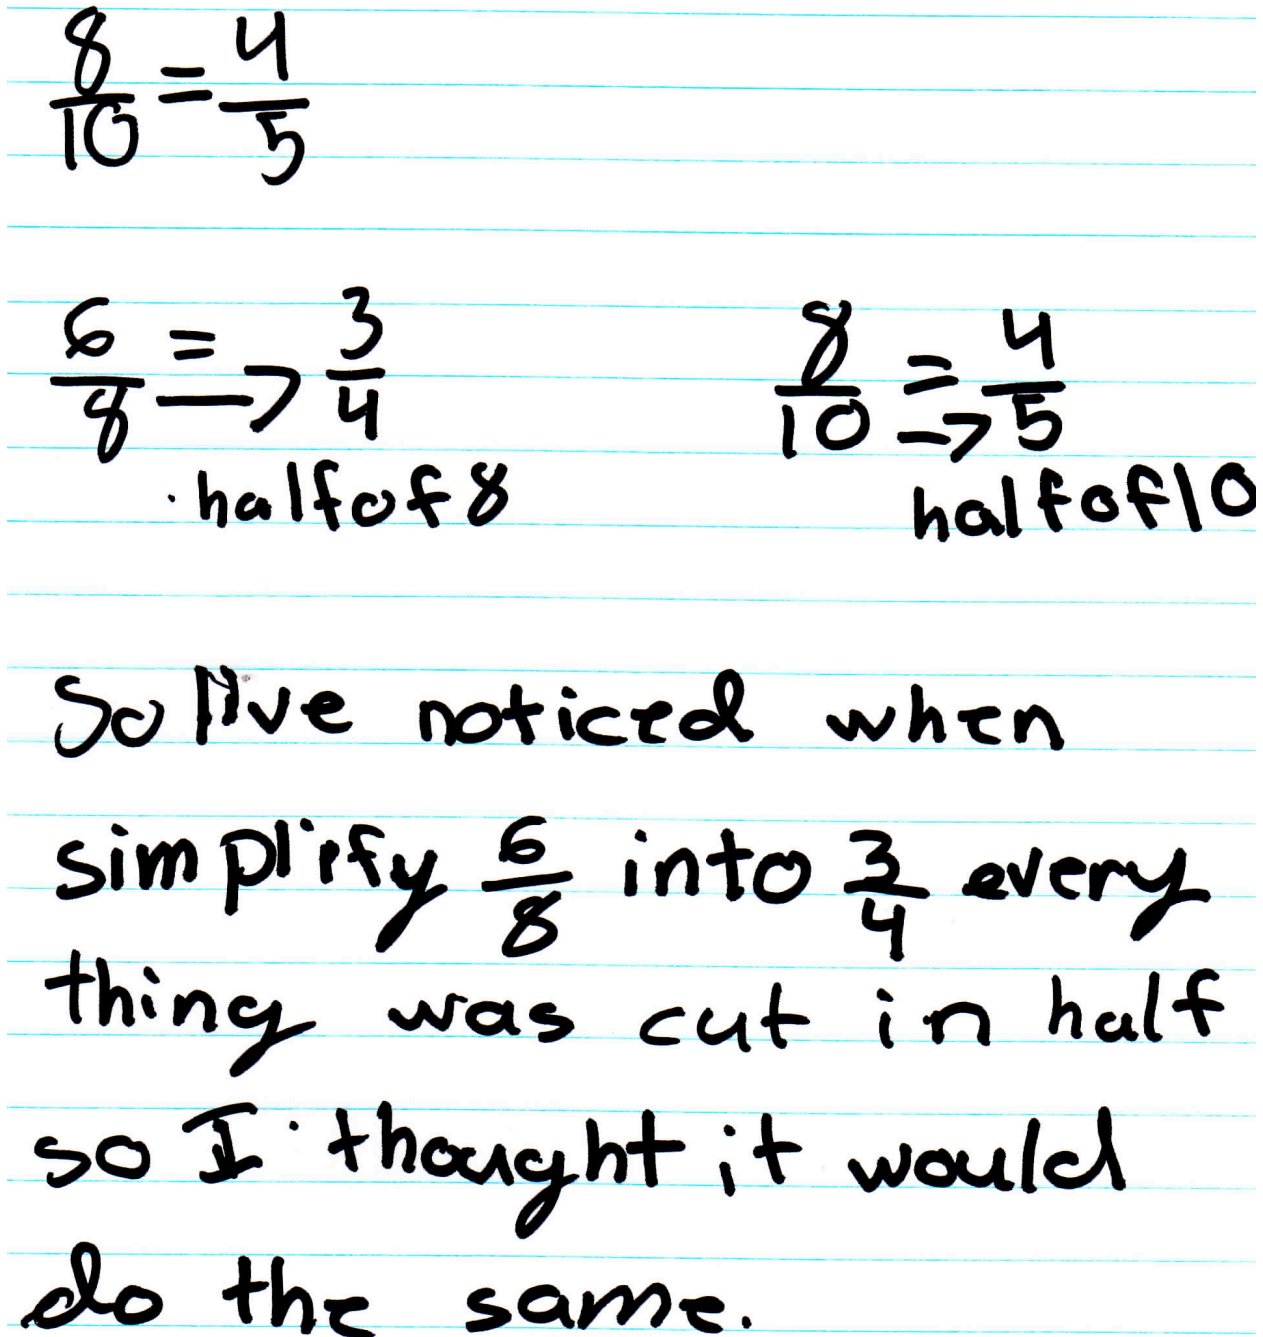 8/10 = 4/5
6/8 = → 3/4    8/10 = → 4/5
half of 8    half of 10
So I've noticed when
simplify 6/8 into 3/4 every
thing was cut in half
so I thought it would
do the same.